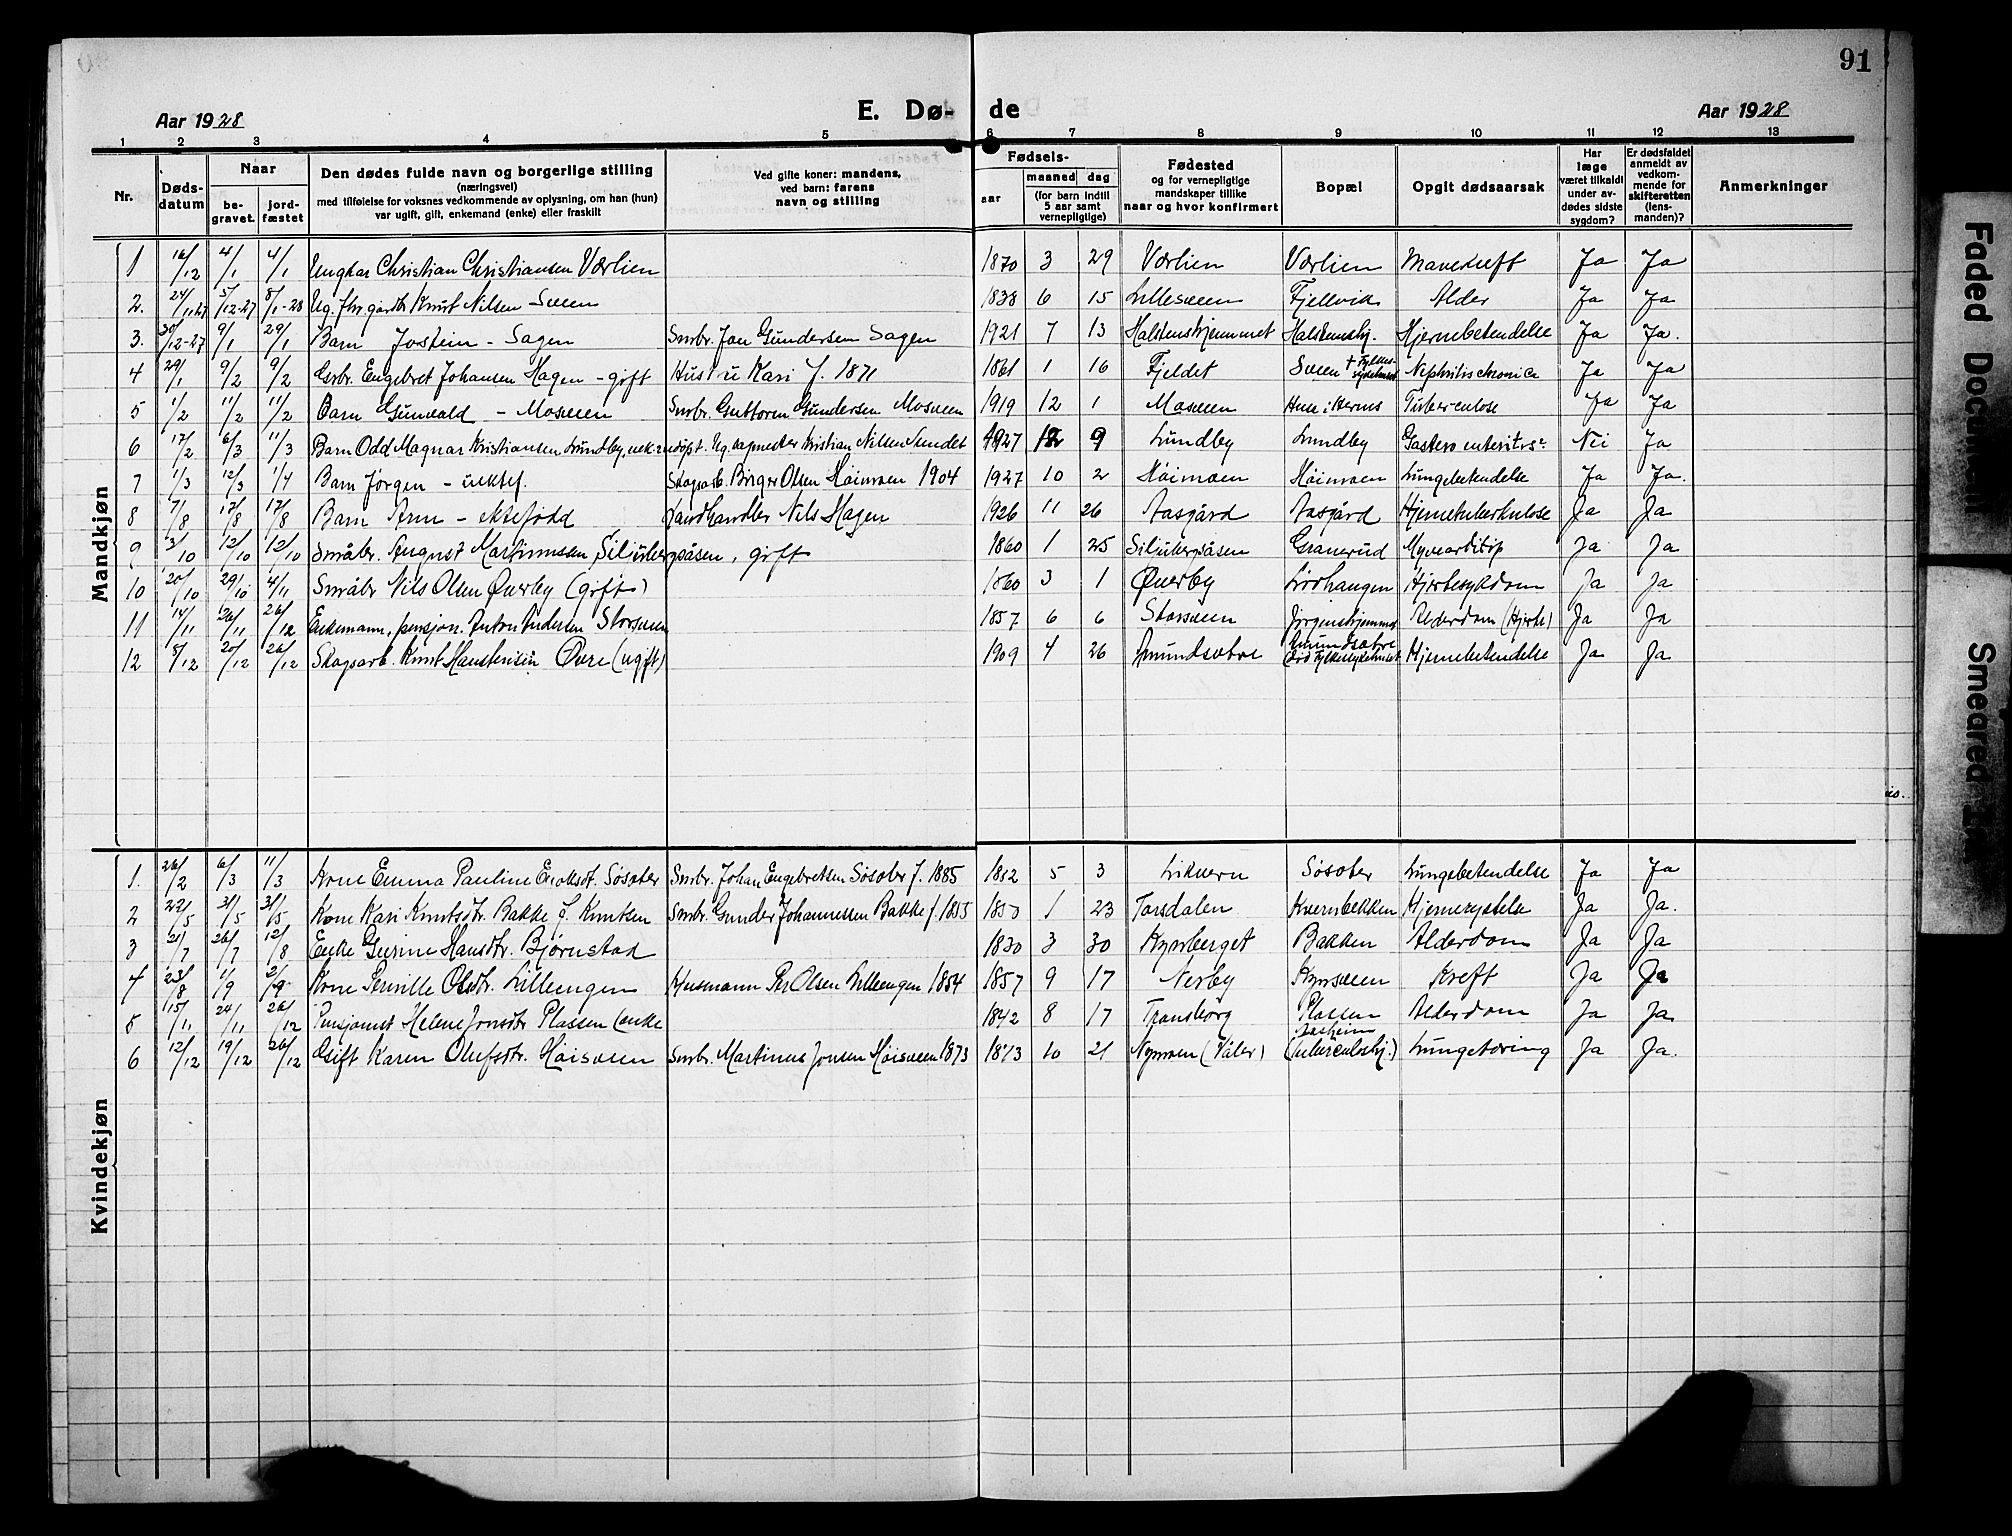 91
Aar 1928 E. Dø- de Aar 1928
1 2 3 4 5 6 7 8 9 10 11 12 13
Nr. Døds-datum Naar be-gravet. jord-fæstet Den dødes fulde navn og borgerlige stilling (næringsvei) med tilføielse for voksnes vedkommende av oplysning, om han (hun) var ugift, gift, enkemand (enke) eller fraskilt Ved gifte koner: mandens, ved barn: farens navn og stilling Fødsels- aar maaned dag (for barn indtil 5 aar samt vernepligtige) Fødested og for vernepligtige mandskaper tillike naar og hvor konfirmert Bopæl Opgit dødsaarsak Har læge været tilkaldt under av-dødes sidste sygdom? Er dødsfaldet anmeldt av vedkom-mende for skifteretten (lens-manden)? Anmerkninger
Mandkjøn
1 16/12 4/1 4/1 Ungkar Christian Christiansen Værlien 1870 3 29 Værlien Værlien Mavekreft Ja Ja
2. 24/11-27 5/12-27 8/1-28 Ug. Knut Nilsen Sveen 1838 6 15 Lillesveen Fjellvik Alder Ja Ja
3. 30/12-27 9/1 29/1 Barn Jostein - Sagen Smbr. Jon Gundersen Sagen 1921 7 13 Halstenshjemmet Halstenshj. Hjernebetendelse Ja Ja.
4 29/1 9/2 9/2 Gbr. Engebret Johansen Hagen - gift Hustru Kari f. 1871 1861 1 16 Fjeldet Sveen + Fylkessykehuset Nephritis chronica Ja Ja
5 1/2 11/2 11/2 Barn Gunvald - Mosveen Smbr. Guttorm Gundersen Mosveen 1919 12 1 Mosveen Tuberculose Ja Ja
6 17/2 6/3 11/3 Barn Odd Magnar Kristiansen Lundby, uekte døpt. Ug. Kristian Nilsen Sundet 1927 12 9 Lundby Lundby Gastero enteritis Nei Ja
7 1/3 12/3 1/4 Barn Jørgen - uektef. Skogsarb. Birger Olsen Høimoen 1904 1927 10 2 Høimoen Høimoen Lungebetendelse Ja Ja.
8 7/8 17/8 17/8 Barn Arne - ektefødd Landhandler Nils Hagen 1926 11 26 Aasgård Aasgård Hjernetuberkulose Ja Ja
9 3/10 12/10 12/10 Småbr. August Martinussen Siljubergsåsen, gift 1860 1 25 Siljubergsåsen Granerud Ja Ja
10 20/10 29/10 4/11 Småbr Nils Olsen Øverby (gift) 1860 3 1 Øverby Lødhaugen Hjertesykdom Ja Ja
11 14/11 26/11 26/12 Enkemann, pensjon. Anton Andersen Storsveen 1857 6 6 Storsveen Jørgenshjemmet Alderdom (Hjerte) Ja Ja
12 8/12 20/12 26/12 Skogsarb. Knut Haustensen Øvre (ugift) 1909 4 26 Amundsætre Amundsætre død Fylkessykehuset Hjernebetendelse Ja Ja
Kvindekjøn
1. 26/2 6/3 11/3 Kone Emma Pauline Eriksdt. Søsæter Smbr. Johan Engebretsen Søsæter f. 1885 5 3 Likvern Søsæter Lungebetendelse Ja Ja
2 22/5 31/5 31/5 Kone Kari Knutsdtr. Bakke f. Knutsen Smbr. Gunder Johannessen Bakke f. 1855 1850 1 23 Torsdalen Kvernbekken Ja Ja.
3 21/7 26/7 12/8 Enke Gurine Hansdtr. Bjørnstad 1830 3 30 Kynberget Bakken Alderdom Ja Ja
4 23/8 1/9 2/9 Kone Pernille Olsdtr. Lilleengen Husmann Per Olsen Lilleengen 1854 1857 9 17 Nerby Kynsveen Kreft Ja Ja
5 15/11 24/11 26/12 Pensjonist Helene Jonsdtr Plassen (enke 1842 8 17 Transborg Plassen Alderdom Ja Ja
6 12/12 19/12 26/12 Gift Karen Olufsdtr. Høisveen Smbr. Martinus Jonsen Høisveen 1873 1873 10 21 Nymoen (Våler) Solheim (Tuberculoshj.) Lungetæring Ja Ja.
Faded Document
Smeared